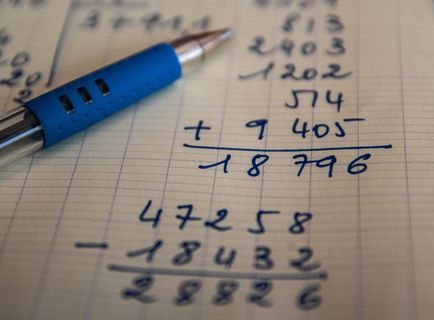 3 + 911
813
2903
1202
514
+ 9 405
18 796
47258
- 18432
28826